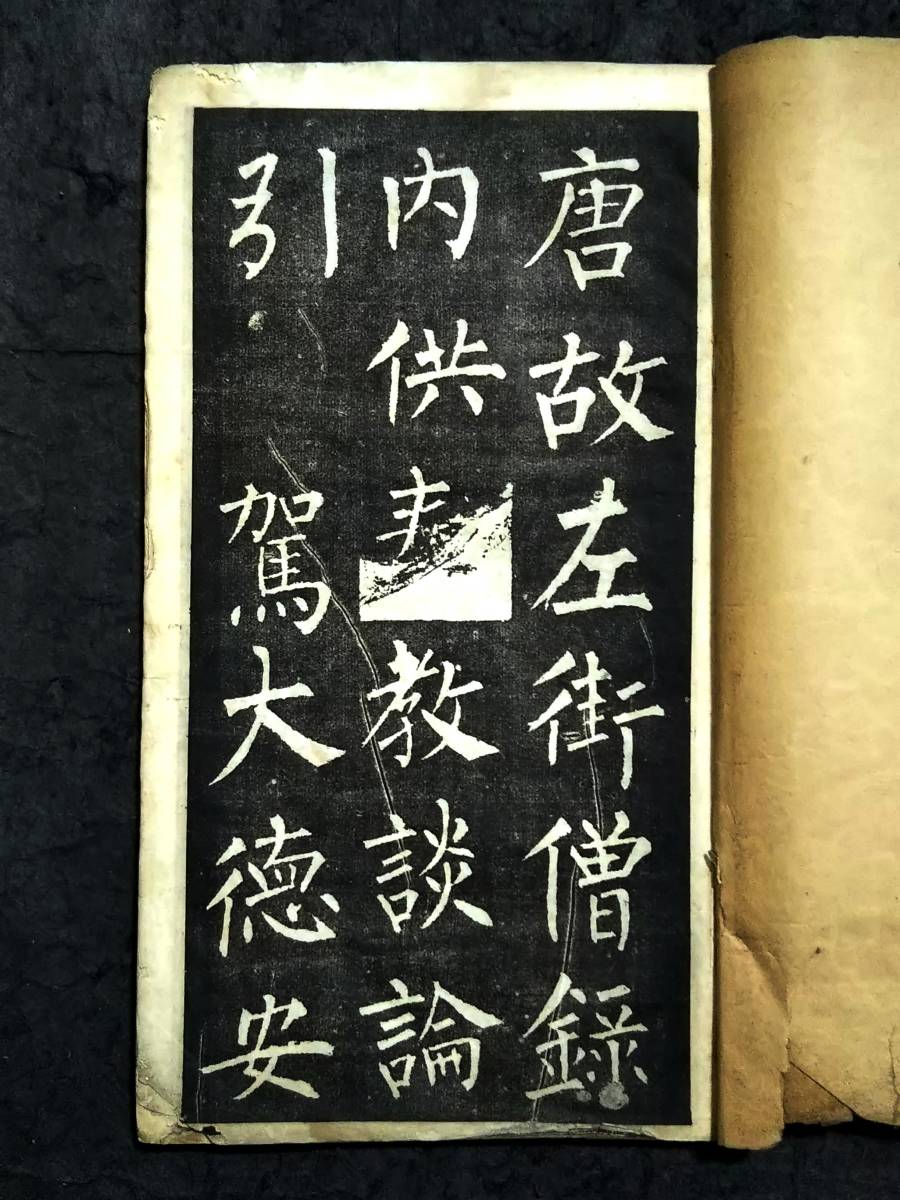 唐故左街僧錄
内供教談論
引駕大德安